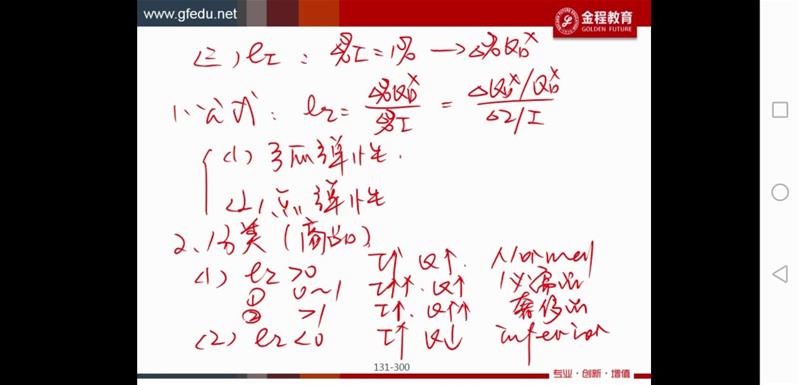 www.gfedu.net 金程教育
GOLDEN FUTURE
(三) eI : Δ%I = 1% → Δ%QDX
1、公式: eI = Δ%QDX / Δ%I = ΔQDX/QDX / ΔI/I
(1) 弧弹性.
(2) 点弹性
2、分类 (商品)
(1) eI >0 I↑ Q↑. Normal
① 0~1 I↑↑. Q↑ 必需品
② >1 I↑. Q↑↑ 奢侈品
(2) eI <0 I↑ Q↓ inferior
131-300
专业·创新·增值